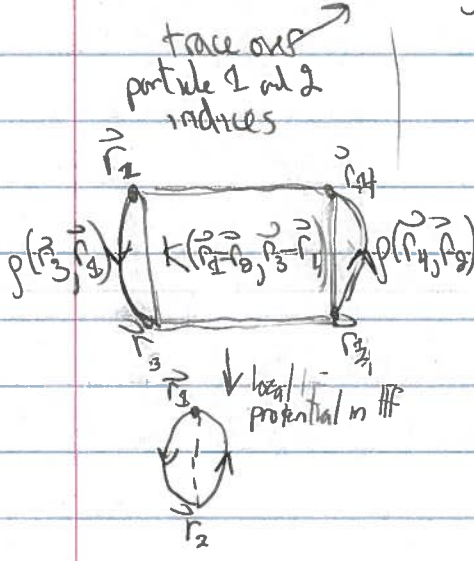 trace over
particle 1 and 2
indices
r⃗₁
r⃗₄
ρ(r⃗₃,r⃗₁) K(r⃗₁-r⃗₂,r⃗₃-r⃗₄) ρ(r⃗₄,r⃗₂)
r⃗₃
local
potential in HF
r⃗₁
r⃗₂